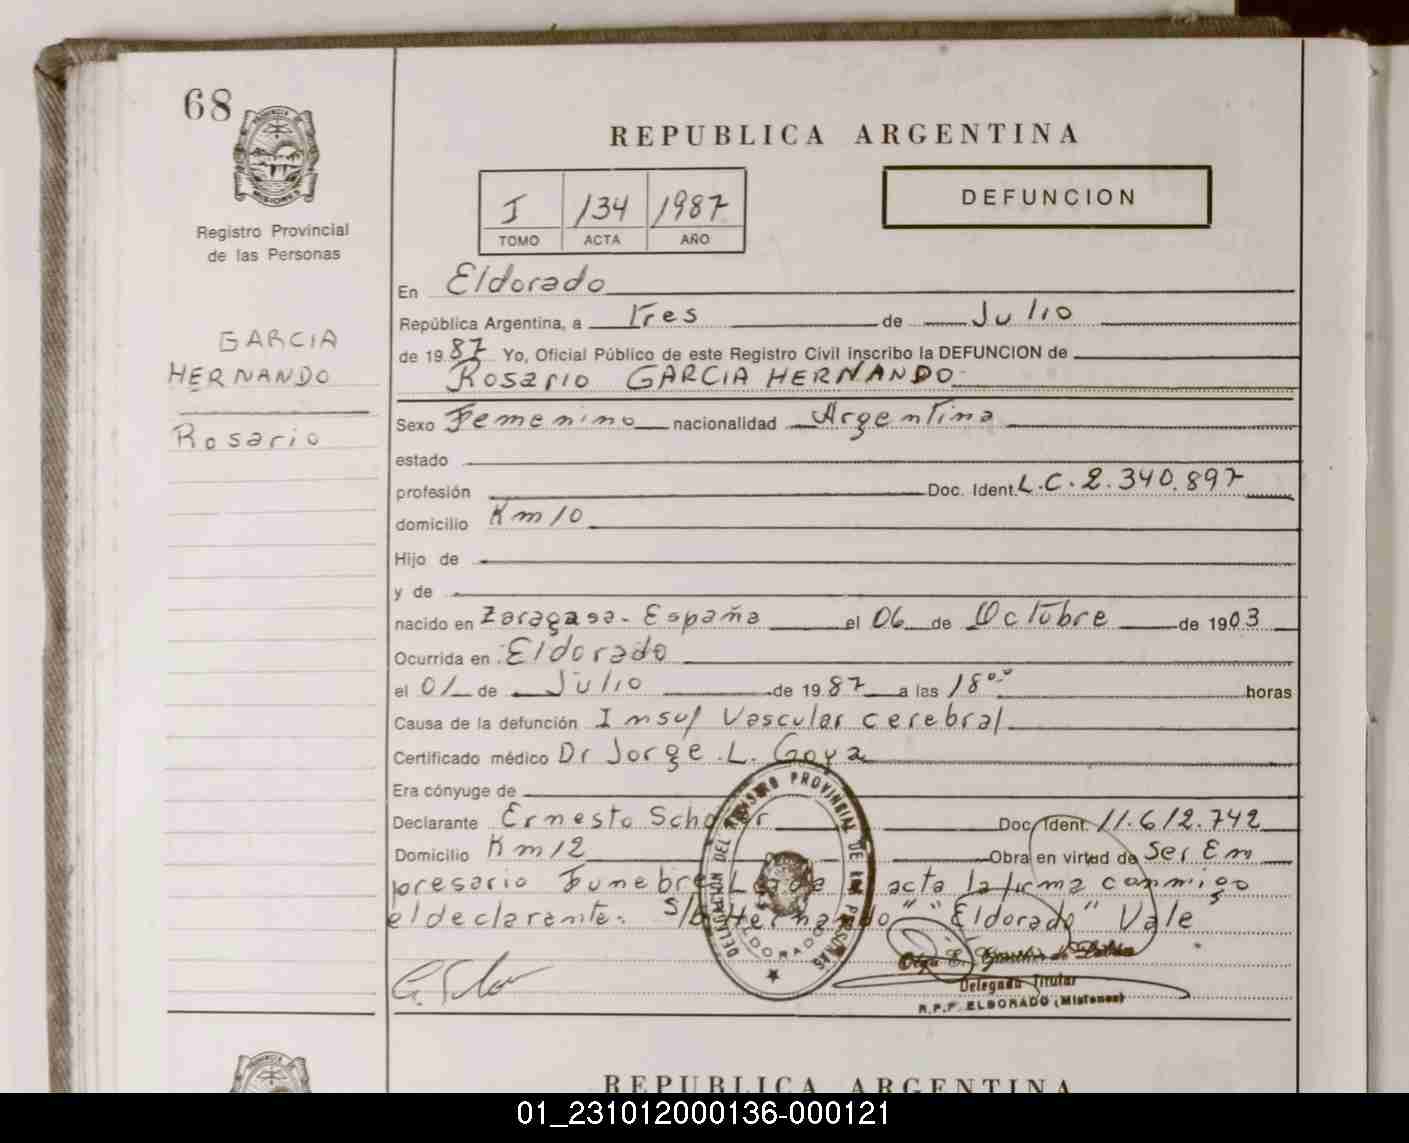 68
PROVINCIA
MISIONES
REPUBLICA ARGENTINA
DEFUNCION
I 134 1987
TOMO ACTA AÑO
Registro Provincial
de las Personas
GARCIA
HERNANDO
Rosario
En Eldorado
República Argentina, a Tres de Julio
de 1987 Yo, Oficial Público de este Registro Civil inscribo la DEFUNCION de
Rosario GARCIA HERNANDO
Sexo Femenino nacionalidad Argentina
estado
profesión Doc. Ident. L.C. 2.340.897
domicilio Km 10
Hijo de
y de
nacido en Zaragasa - España el 06 de Octubre de 1903
Ocurrida en Eldorado
el 01 de Julio de 1987 a las 18°° horas
Causa de la defunción Insuf Vascular cerebral
Certificado médico Dr Jorge L. Goya
Era cónyuge de
Declarante Ernesto Doc. Ident. 11.612.742
Domicilio Km 12 Obra en virtud de Ser Em
presario Funebre acta la firma conmigo
el declarante. S/b Hernando " " Eldorado" Vale
DELEGACION DEL REGISTRO PROVINCIAL DE LAS PERSONAS
ELDORADO
Olga E. de
Delegada Titular
R.P.P. ELDORADO (Misiones)
REPUBLICA ARGENTINA
01_231012000136-000121